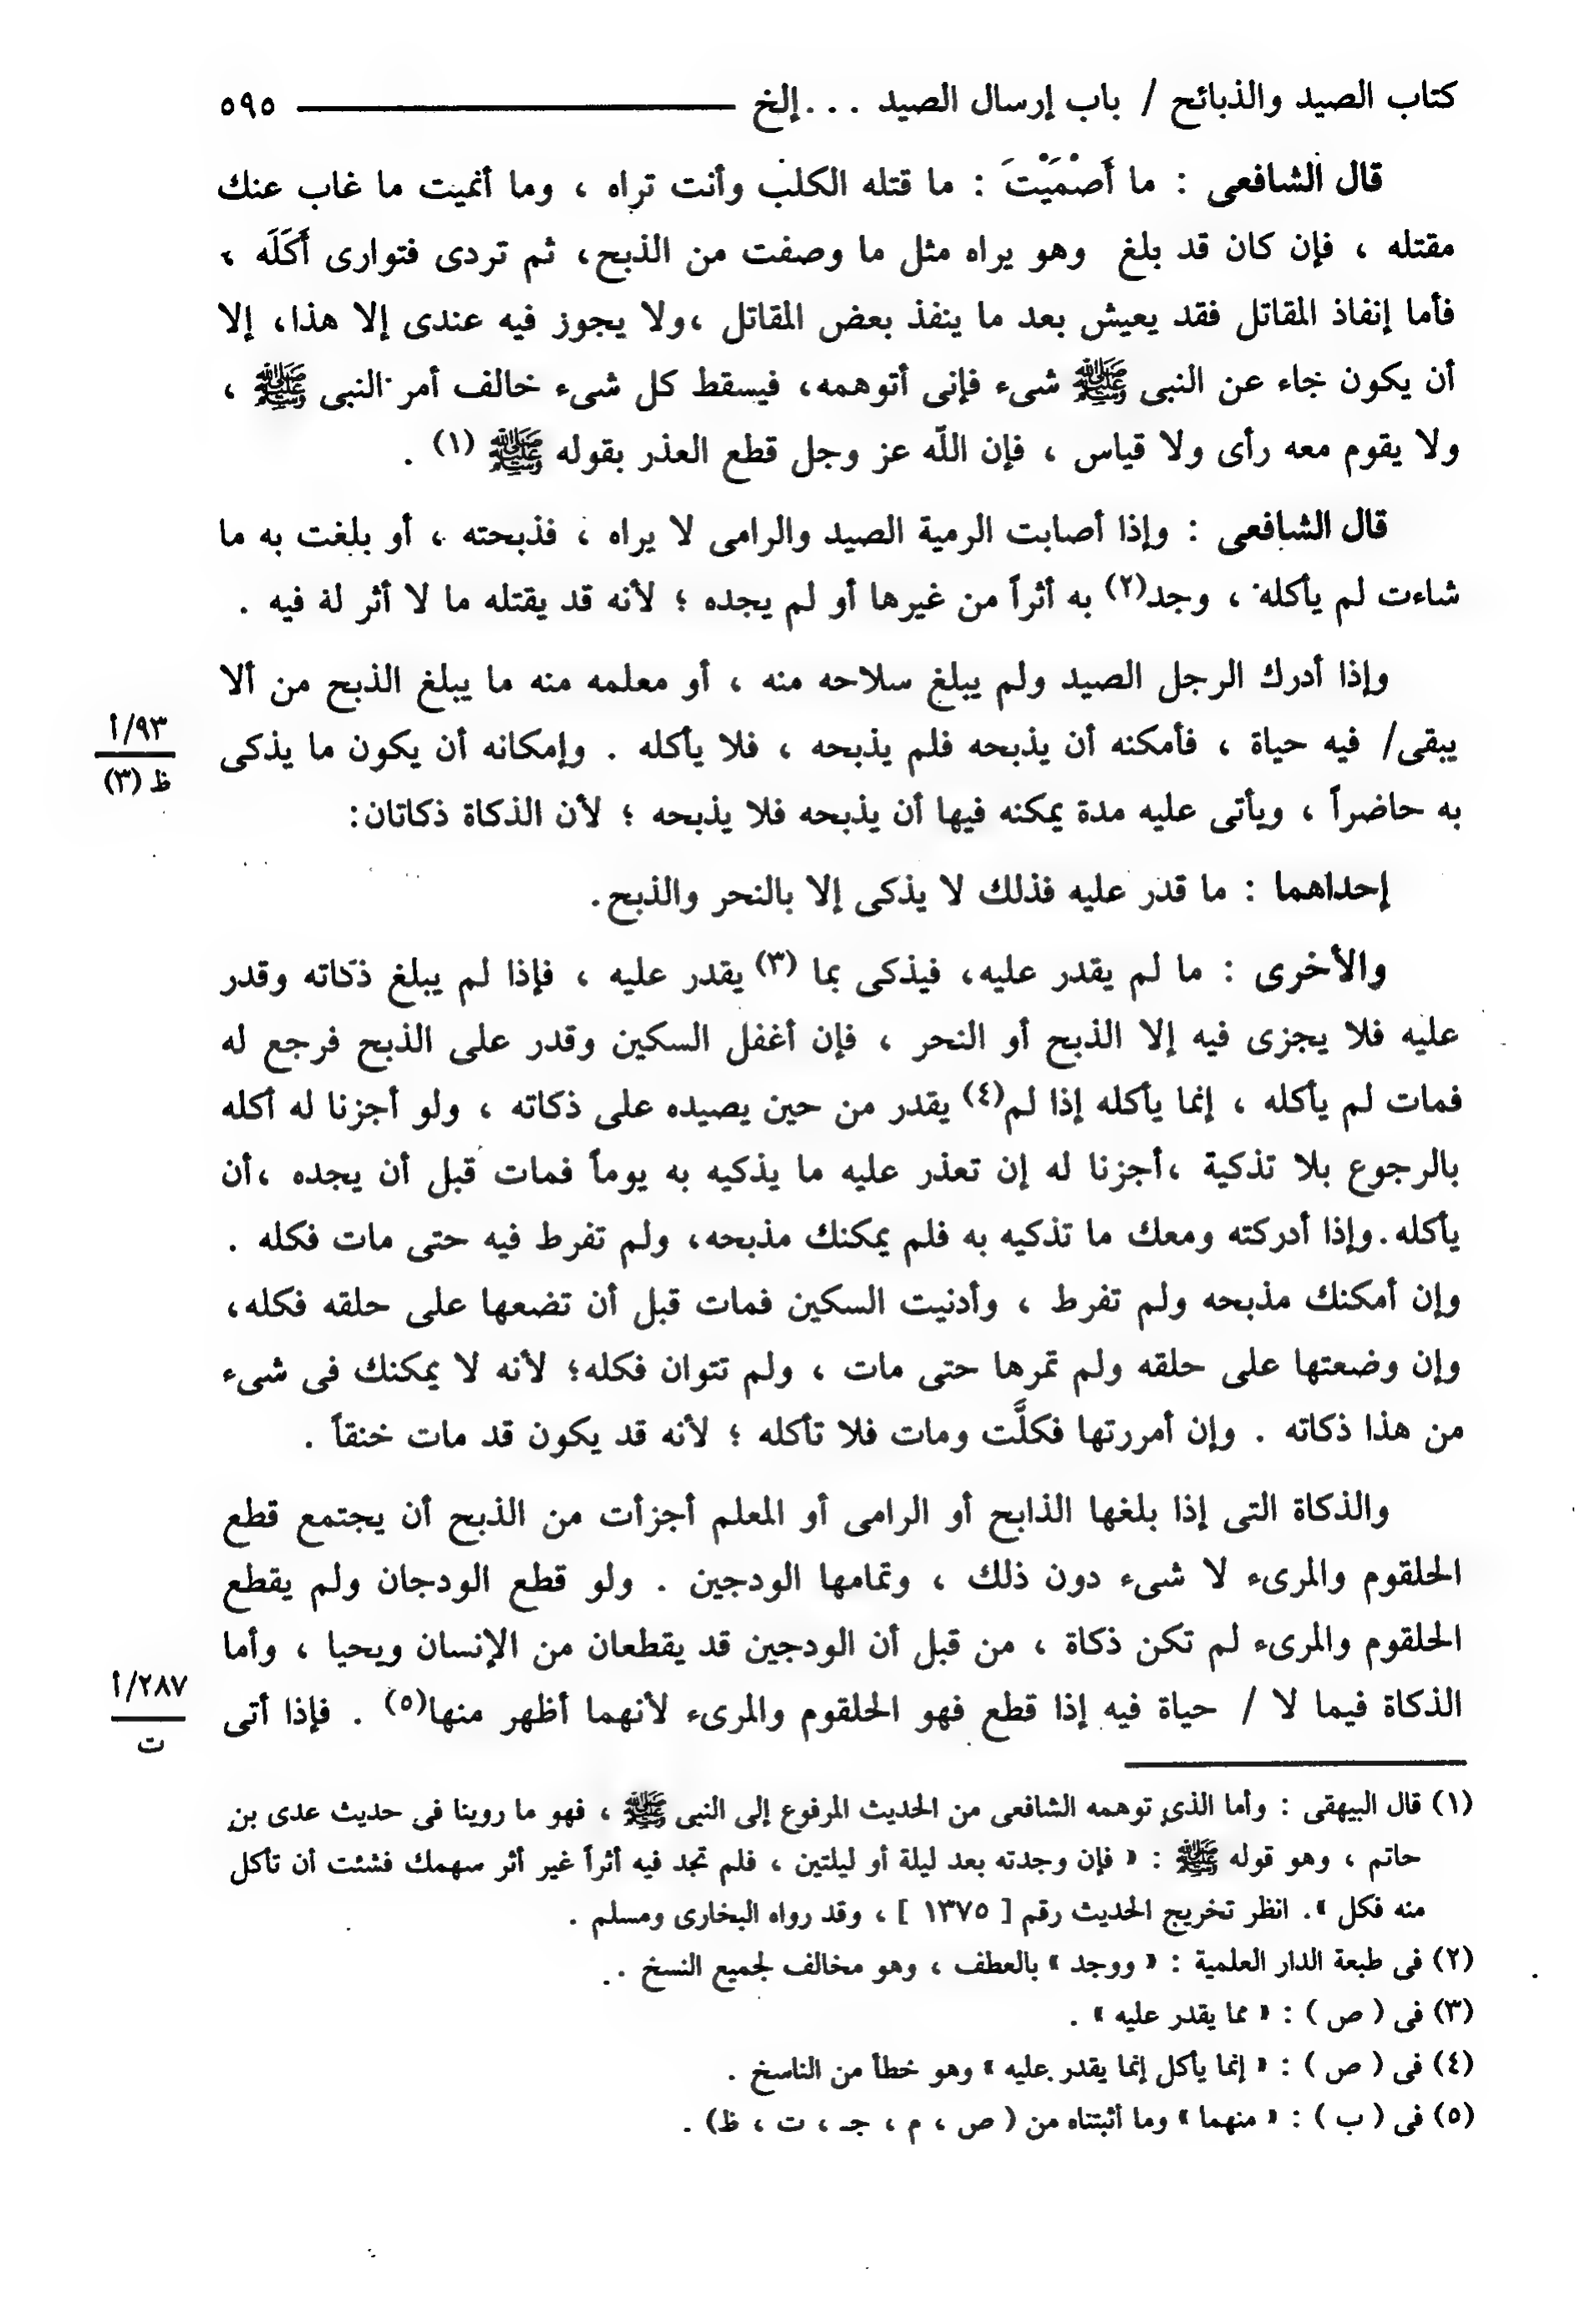 كتاب الصيد والذبائح / باب إرسال الصيد . . . إلخ ٥٩٥
قال الشافعى : ما أَصْمَيْتَ : ما قتله الكلب وأنت تراه ، وما أنميت ما غاب عنك
مقتله ، فإن كان قد بلغ وهو يراه مثل ما وصفت من الذبح، ثم تردى فتوارى أَكَلَه ،
فأما إنفاذ المقاتل فقد يعيش بعد ما ينفذ بعض المقاتل ،ولا يجوز فيه عندى إلا هذا، إلا
أن يكون جاء عن النبى ﷺ شىء فإنى أتوهمه، فيسقط كل شىء خالف أمر النبى ﷺ ،
ولا يقوم معه رأى ولا قياس ، فإن اللّه عز وجل قطع العذر بقوله ﷺ (١) .
قال الشافعى : وإذا أصابت الرمية الصيد والرامى لا يراه ، فذبحته ، أو بلغت به ما
شاءت لم يأكله ، وجد(٢) به أثراً من غيرها أو لم يجده ؛ لأنه قد يقتله ما لا أثر له فيه .
وإذا أدرك الرجل الصيد ولم يبلغ سلاحه منه ، أو معلمه منه ما يبلغ الذبح من ألا
يبقى/ فيه حياة ، فأمكنه أن يذبحه فلم يذبحه ، فلا يأكله . وإمكانه أن يكون ما يذكى
٩٣/أ
ظ (٣)
به حاضراً ، ويأتى عليه مدة يمكنه فيها أن يذبحه فلا يذبحه ؛ لأن الذكاة ذكاتان:
إحداهما : ما قدر عليه فذلك لا يذكى إلا بالنحر والذبح.
والأخرى : ما لم يقدر عليه، فيذكى بما (٣) يقدر عليه ، فإذا لم يبلغ ذكاته وقدر
عليه فلا يجزى فيه إلا الذبح أو النحر ، فإن أغفل السكين وقدر على الذبح فرجع له
فمات لم يأكله ، إنما يأكله إذا لم(٤) يقدر من حين يصيده على ذكاته ، ولو أجزنا له أكله
بالرجوع بلا تذكية ،أجزنا له إن تعذر عليه ما يذكيه به يوماً فمات قبل أن يجده ،أن
يأكله .وإذا أدركته ومعك ما تذكيه به فلم يمكنك مذبحه، ولم تفرط فيه حتى مات فكله .
وإن أمكنك مذبحه ولم تفرط ، وأدنيت السكين فمات قبل أن تضعها على حلقه فكله،
وإن وضعتها على حلقه ولم تمرها حتى مات ، ولم تتوان فكله؛ لأنه لا يمكنك فى شىء
من هذا ذكاته . وإن أمررتها فكلَّت ومات فلا تأكله ؛ لأنه قد يكون قد مات خنقاً .
والذكاة التى إذا بلغها الذابح أو الرامى أو المعلم أجزأت من الذبح أن يجتمع قطع
الحلقوم والمرىء لا شىء دون ذلك ، وتمامها الودجين . ولو قطع الودجان ولم يقطع
الحلقوم والمرىء لم تكن ذكاة ، من قبل أن الودجين قد يقطعان من الإنسان ويحيا ، وأما
الذكاة فيما لا / حياة فيه إذا قطع فهو الحلقوم والمرىء لأنهما أظهر منها(٥) . فإذا أتى
٢٨٧/أ
ت
(١) قال البيهقى : وأما الذي توهمه الشافعى من الحديث المرفوع إلى النبى ﷺ ، فهو ما روينا فى حديث عدى بن
حاتم ، وهو قوله ﷺ : « فإن وجدته بعد ليلة أو ليلتين ، فلم تجد فيه أثراً غير أثر سهمك فشئت أن تأكل
منه فكل ». انظر تخريج الحديث رقم [ ١٣٧٥ ] ، وقد رواه البخارى ومسلم .
(٢) فى طبعة الدار العلمية : « ووجد » بالعطف ، وهو مخالف لجميع النسخ .
(٣) فى ( ص ) : « مما يقدر عليه » .
(٤) فى ( ص ) : « إنما يأكل إنما يقدر عليه » وهو خطأ من الناسخ .
(٥) فى ( ب ) : « منهما » وما أثبتناه من ( ص ، م ، جـ ، ت ، ظ) .